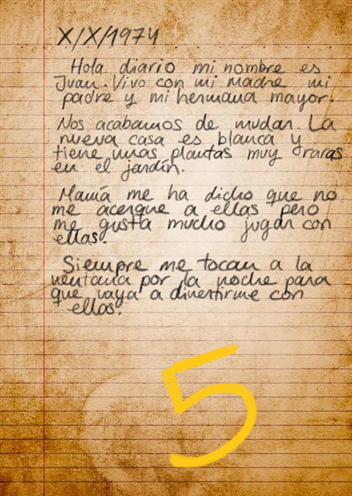 X/X/1974
Hola diario mi nombre es
Juan. Vivo con mi madre mi
padre y mi hermana mayor.
Nos acabamos de mudar. La
nueva casa es blanca y
tiene unas plantas muy raras
en el jardín.
Mamá me ha dicho que no
me acerque a ellas pero
me gusta mucho jugar con
ellas.
Siempre me tocan a la
ventana por la noche para
que vaya a divertirme con
ellas.
5